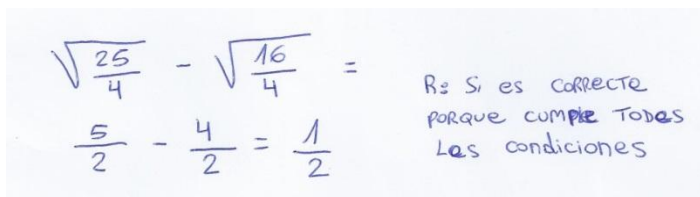 √25/4 - √16/4 =
5/2 - 4/2 = 1/2
R: Si es correcte
porque cumple todas
Las condiciones